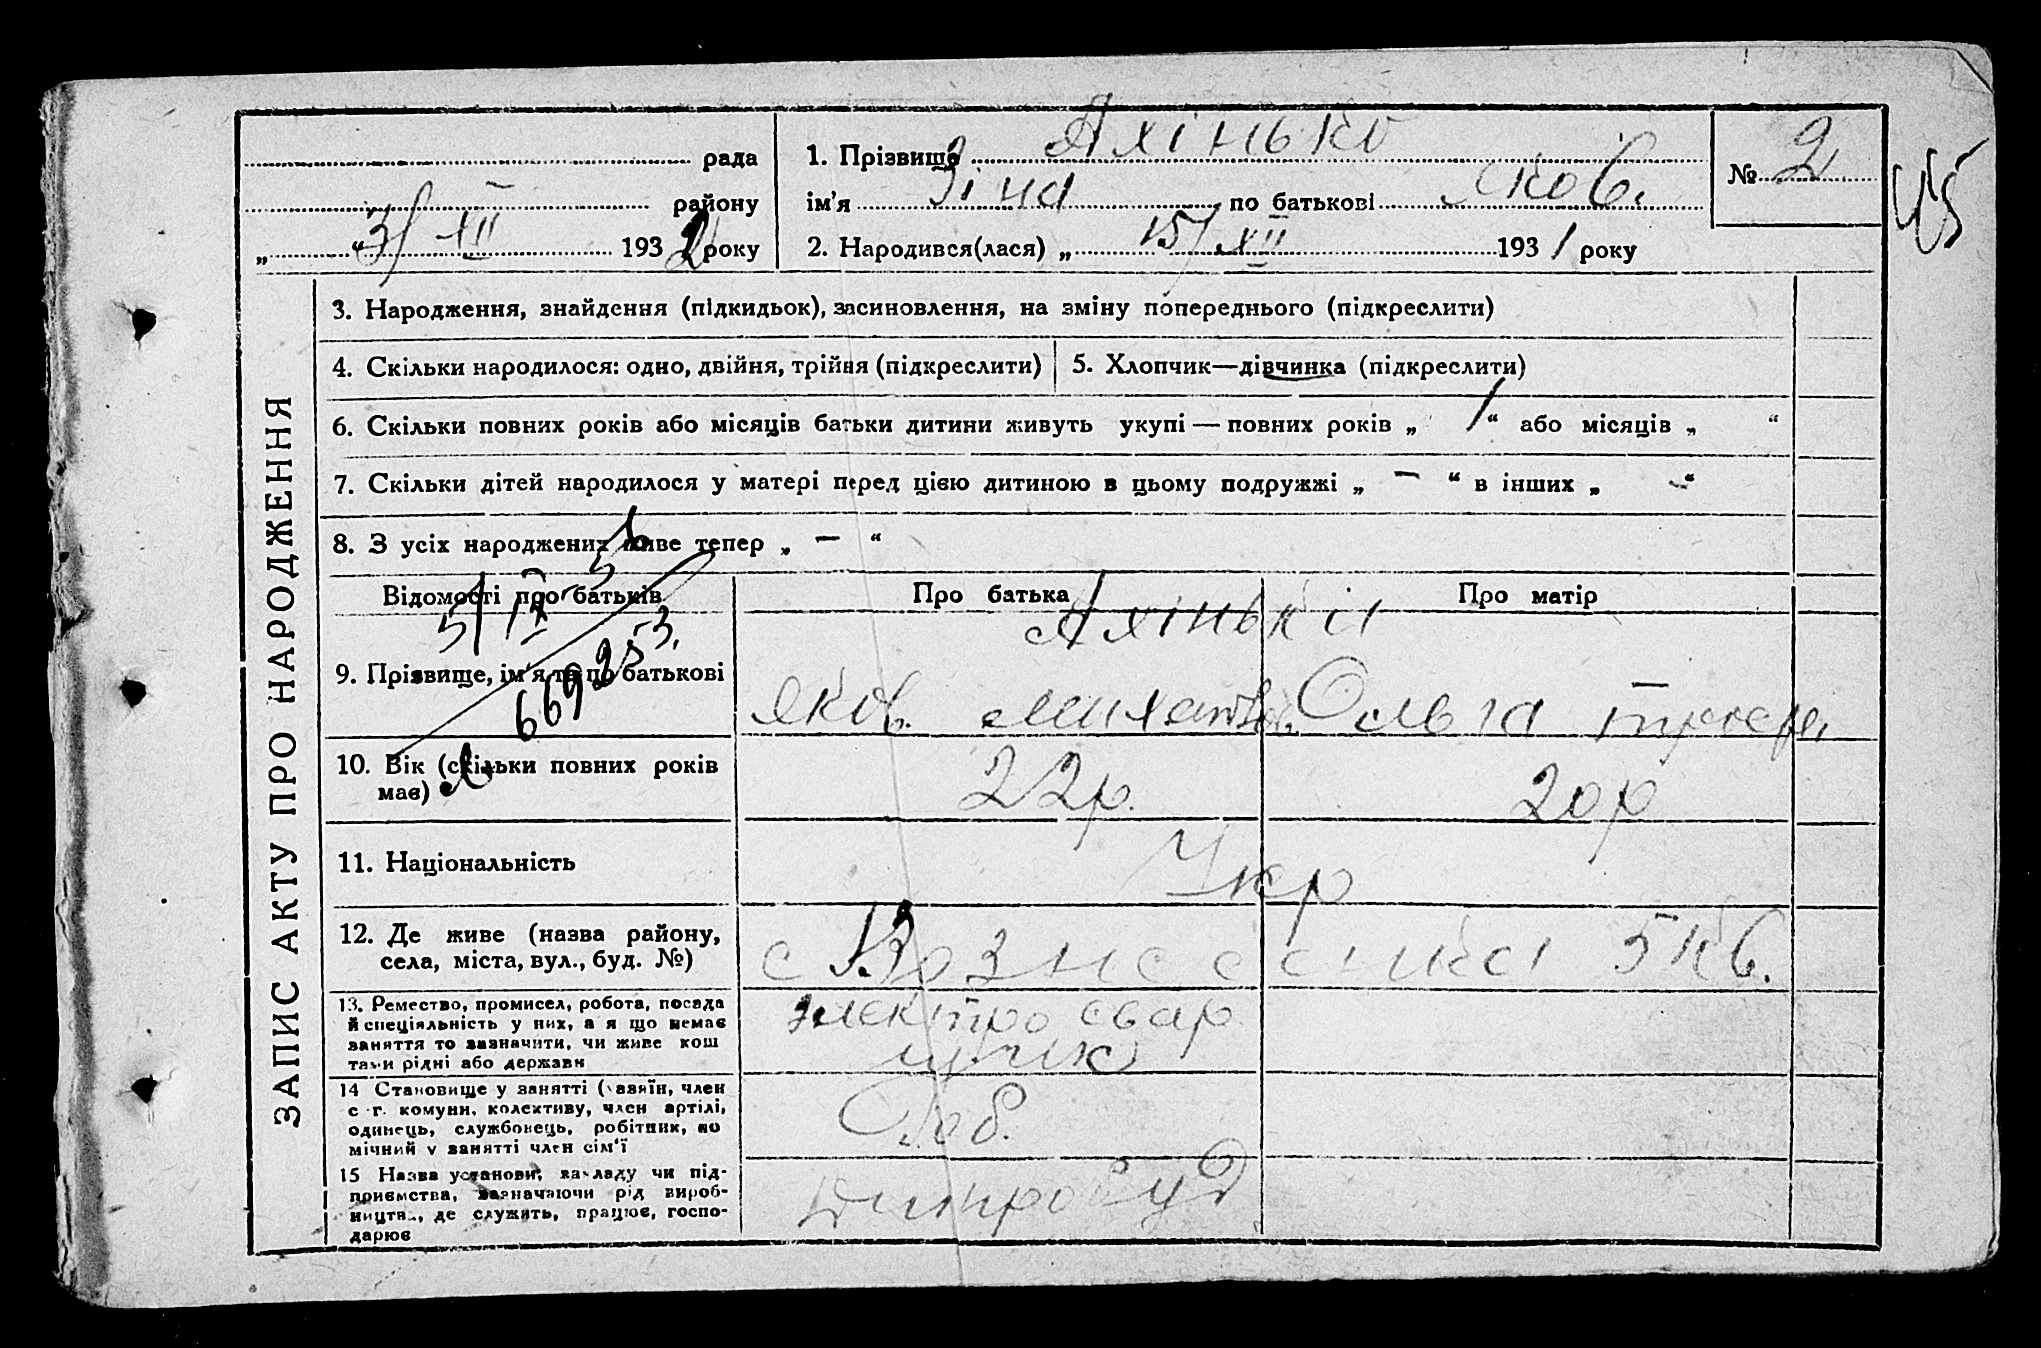 рада
району
„ 3/ XII 1932 року
1. Прізвище Ахінько
ім'я Зіна по батькові Яков.
2. Народився(лася) „ 15/XII 1931 року
№ 2
45
ЗАПИС АКТУ ПРО НАРОДЖЕННЯ
3. Народження, знайдення (підкидьок), засиновлення, на зміну попереднього (підкреслити)
4. Скільки народилося: одно, двійня, трійня (підкреслити) 5. Хлопчик—дівчинка (підкреслити)
6. Скільки повних років або місяців батьки дитини живуть укупі — повних років „ 1 “ або місяців „ “
7. Скільки дітей народилося у матері перед цією дитиною в цьому подружжі „ — “ в інших „ - “
8. З усіх народжених живе тепер „ — “
Відомості про батьків Про батька Про матір
5/IX 53.
669253
9. Прізвище, ім'я та по батькові
Ахінька
Яков. Ольга
10. Вік (скільки повних років
має)
22р. 20р
11. Національність
Укр
12. Де живе (назва району,
села, міста, вул., буд. №)
с Вознесенка 5 кв.
13. Ремество, промисел, робота, посада
й спеціяльність у них, а я що немає
заняття то зазначити, чи живе кош
тами рідні або держави
Электросвар
щик
14 Становище у занятті (хазяїн, член
с-г. комуни, колективу, член артілі,
одинець, службовець, робітник, по
мічний у занятті член сім'ї
Роб.
15 Назва установи, закладу чи під-
приємства, зазначаючи рід вироб-
ництва, де служить, працює, госпо-
дарює
Дніпробуд